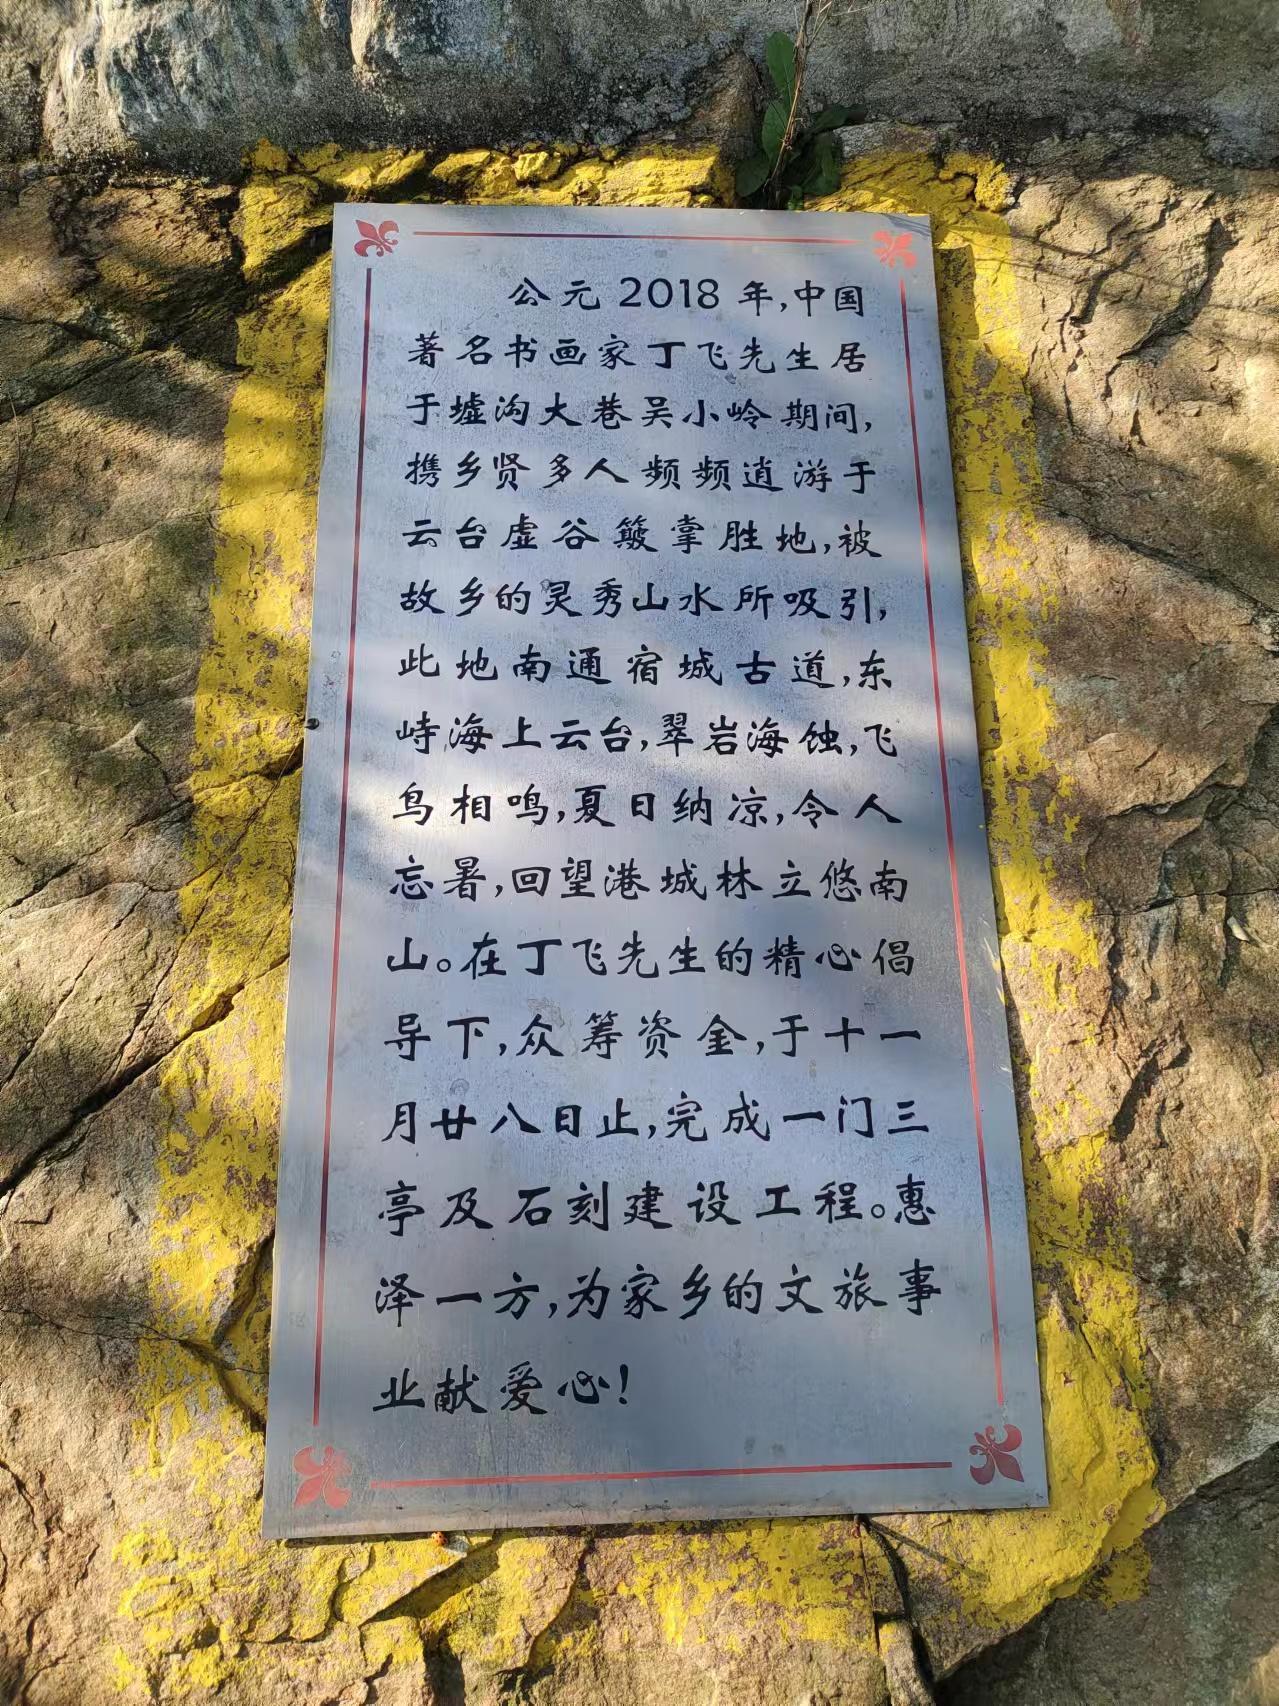 公元2018年,中国
著名书画家丁飞先生居
于墟沟大巷吴小岭期间,
携乡贤多人频频逍游于
云台虚谷簸掌胜地,被
故乡的灵秀山水所吸引,
此地南通宿城古道,东
峙海上云台,翠岩海蚀,飞
鸟相鸣,夏日纳凉,令人
忘暑,回望港城林立悠南
山。在丁飞先生的精心倡
导下,众筹资金,于十一
月廿八日止,完成一门三
亭及石刻建设工程。惠
泽一方,为家乡的文旅事
业献爱心!